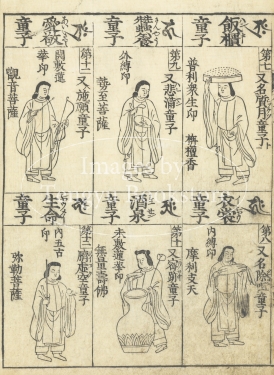 飯櫃
童子
第七又名質月童子
普利衆生印
栴檀香
蠶養
童子
第九又悲満童子
外縛印
勢至菩薩
愛敬
童子
第十一又施願童子
開敷蓮
華印
觀音菩薩
衣裳
童子
第八又名除童子
内縛印
摩利支天
酒泉
童子
第十又密跡童子
未敷蓮華印
無量壽佛
生命
童子
第十二虚空童子
内五古
印
弥勒菩薩
Images by